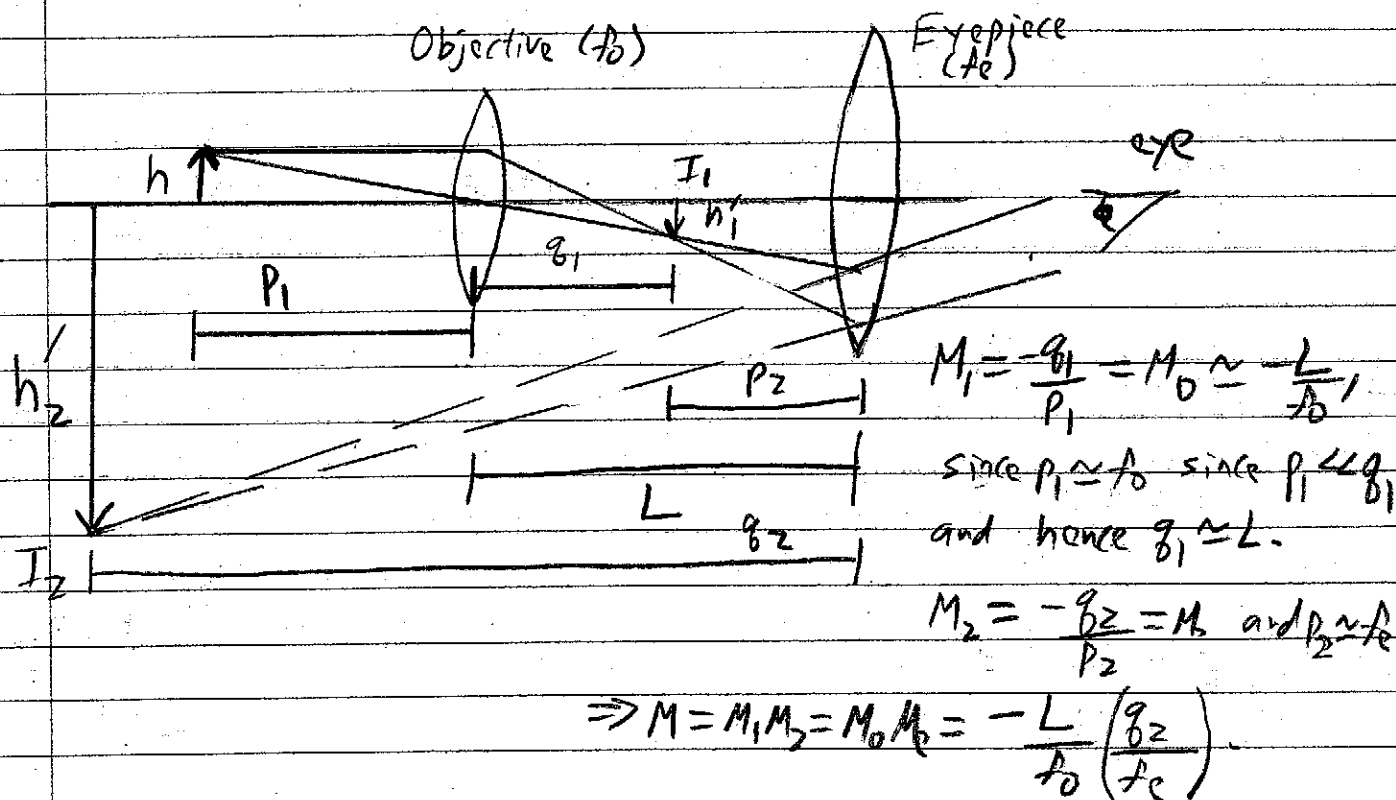 Objective (fo)
Eyepiece
(fe)
eye
h
I₁
h₁'
θ
q₁
P₁
h₂'
P₂
L
q₂
I₂
M₁ = -q₁/P₁ = Mo ≃ -L/fo,
since p₁ ≃ fo since p₁ << q₁
and hence q₁ ≃ L.
M₂ = -q₂/P₂ = and p₂ ≃ fe
⇒ M = M₁M₂ = MoMe = -L/fo (q₂/fe).